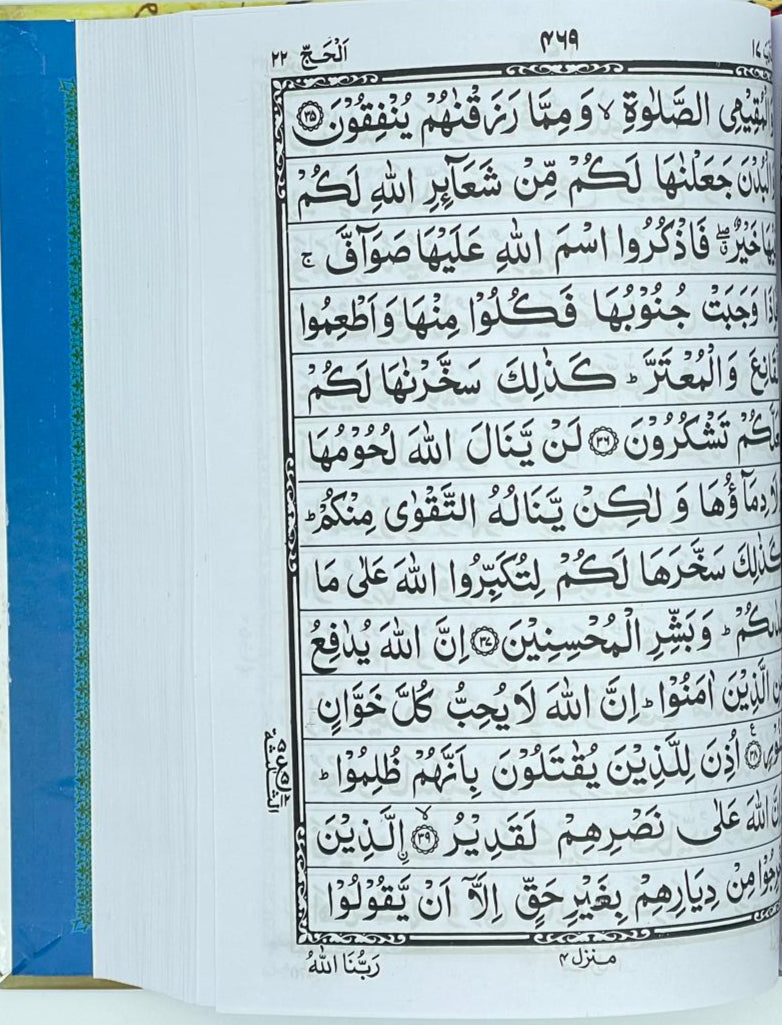 اَلْحَجّ ٢٢
٤٦٩
١٧
الْمُقِيْمِى الصَّلٰوةِ ۙ وَمِمَّا رَزَقْنٰهُمْ يُنْفِقُوْنَ ﴿٣٥﴾
الْبُدْنَ جَعَلْنٰهَا لَكُمْ مِّنْ شَعَآئِرِ اللّٰهِ لَكُمْ
خَيْرٌ ۖ فَاذْكُرُوا اسْمَ اللّٰهِ عَلَيْهَا صَوَآفَّ ۚ
وَجَبَتْ جُنُوْبُهَا فَكُلُوْا مِنْهَا وَاَطْعِمُوا
وَالْمُعْتَرَّ ؕ كَذٰلِكَ سَخَّرْنٰهَا لَكُمْ
تَشْكُرُوْنَ ﴿٣٦﴾ لَنْ يَّنَالَ اللّٰهَ لُحُوْمُهَا
دِمَآؤُهَا وَ لٰكِنْ يَّنَالُهُ التَّقْوٰى مِنْكُمْ ؕ
كَذٰلِكَ سَخَّرَهَا لَكُمْ لِتُكَبِّرُوا اللّٰهَ عَلٰى مَا
وَبَشِّرِ الْمُحْسِنِيْنَ ﴿٣٧﴾ اِنَّ اللّٰهَ يُدٰفِعُ
الَّذِيْنَ اٰمَنُوْا ؕ اِنَّ اللّٰهَ لَا يُحِبُّ كُلَّ خَوَّانٍ
﴿٣٨﴾ اُذِنَ لِلَّذِيْنَ يُقٰتَلُوْنَ بِاَنَّهُمْ ظُلِمُوْا ؕ
اللّٰهَ عَلٰى نَصْرِهِمْ لَقَدِيْرُ ۙ﴿٣٩﴾ اِۨلَّذِيْنَ
مِنْ دِيَارِهِمْ بِغَيْرِ حَقٍّ اِلَّآ اَنْ يَّقُوْلُوْا
رَبُّنَا اللّٰهُ
منزل ٤